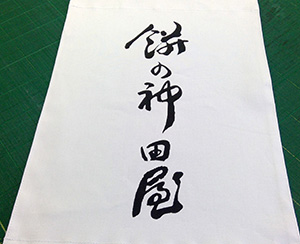 餅の神田屋